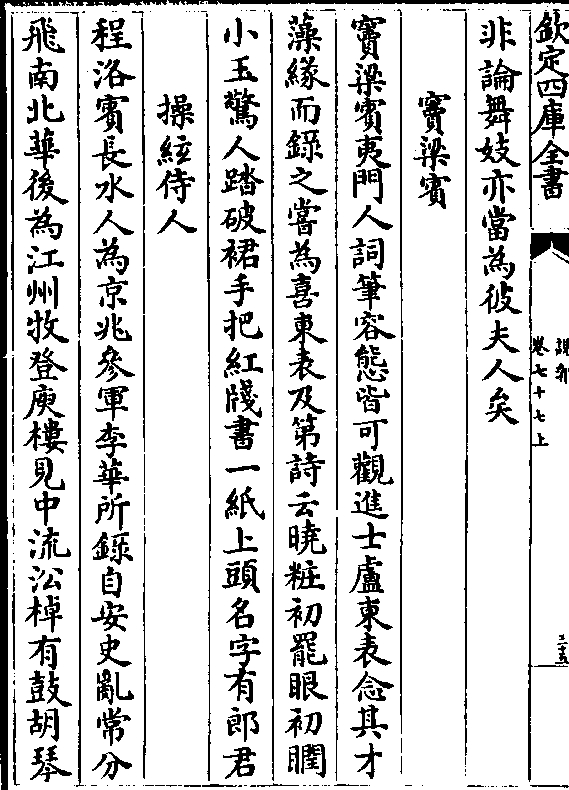 欽定四庫全書
說郛
卷七十七上
二十五
非論舞妓亦當為彼夫人矣
竇梁賓
竇梁賓夷門人詞筆容態皆可觀進士盧東表念其才
藻緣而錄之嘗為喜東表及第詩云曉粧初罷眼初瞤
小玉驚人踏破裙手把紅牋書一紙上頭名字有郎君
操絃侍人
程洛賓長水人為京兆參軍李華所錄自安史亂常分
飛南北華後為江州牧登庾樓見中流㳂棹有鼓胡琴